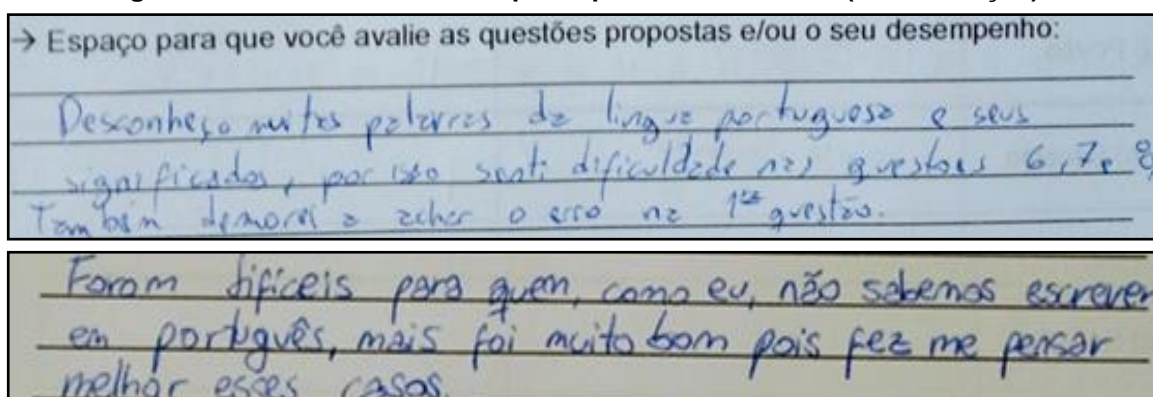 → Espaço para que você avalie as questões propostas e/ou o seu desempenho:
Desconheço muitas palavras da língua portuguesa e seus
significados, por isso senti dificuldade nas questões 6, 7 e 8
Também demorei a achar o erro na 1ª questão.
Foram difíceis para quem, como eu, não sabemos escrever
em português, mais foi muito bom pois fez me pensar
melhor esses casos.